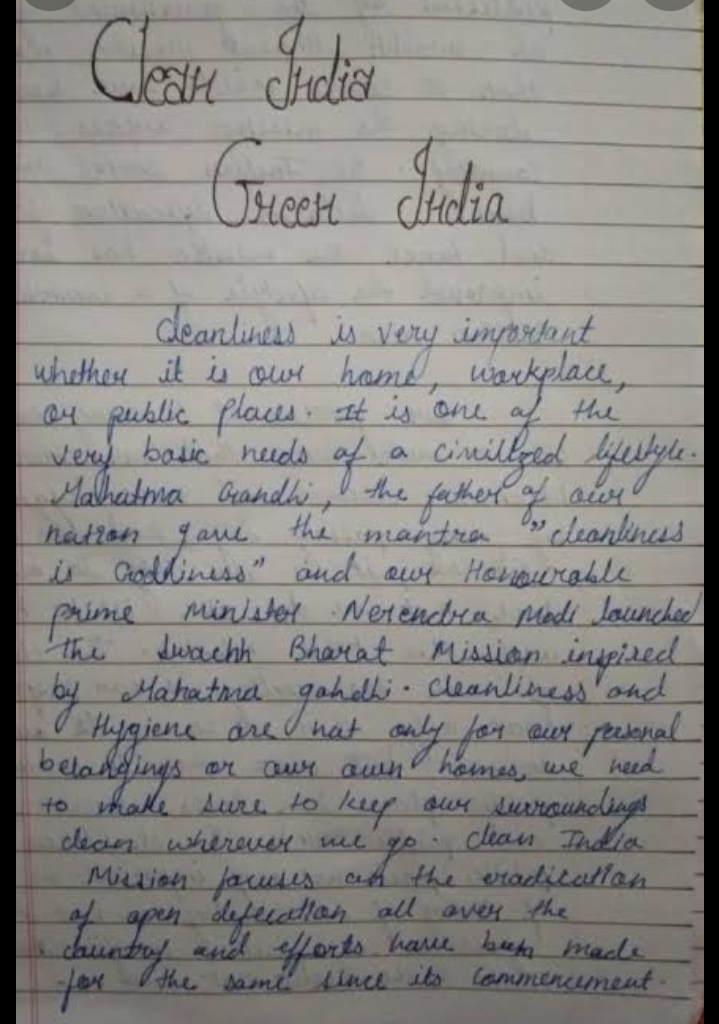 Clean India
Green India
Cleanliness is very important
whether it is our home, workplace,
or public places. It is one of the
very basic needs of a civillzed lifestyle.
Mahatma Gandhi, the father of our
nation gave the mantra "cleanliness
is Godliness" and our Honourable
prime Minister Nerendra Modi launched
the Swachh Bharat Mission inspired
by Mahatma gahdhi. Cleanliness and
Hygiene are not only for our personal
belongings or our own homes, we need
to make sure to keep our surroundings
clean wherever we go. Clean India
Mission focuses on the eradication
of open defecation all over the
country and efforts have been made
for the same since its commencement.